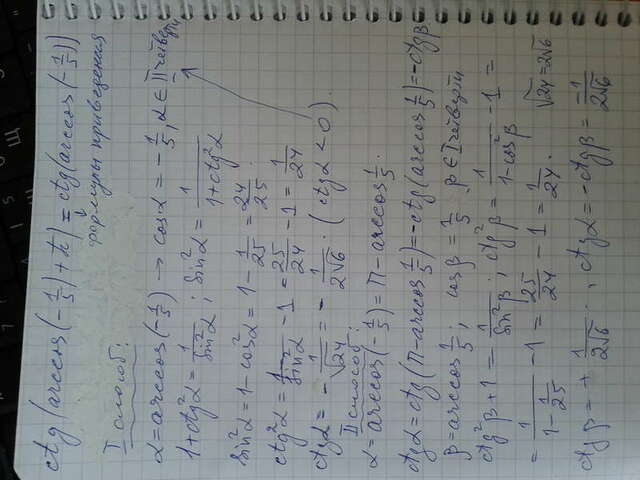 ctg(arccos(-1/5)+π)=ctg(arccos(-1/5))
формулы приведения
I способ:
α=arccos(-1/5) → cosα=-1/5, α∈II четверти
1+ctg²α=1/sin²α; sin²α=1/(1+ctg²α)
sin²α=1-cos²α=1-1/25=24/25.
ctg²α=1/sin²α-1=25/24-1=1/24
ctgα=-1/√24=-1/(2√6). (ctgα<0).
II способ:
α=arccos(-1/5)=π-arccos 1/5.
ctgα=ctg(π-arccos 1/5)=-ctg(arccos 1/5)=-ctgβ
β=arccos 1/5; cosβ=1/5 β∈I четверти
ctg²β+1=1/sin²β; ctg²β=1/(1-cos²β)-1=
=1/(1-1/25)-1=25/24-1=1/24. √24=2√6
ctgβ=+1/(2√6); ctgα=-ctgβ=-1/(2√6)
Щ